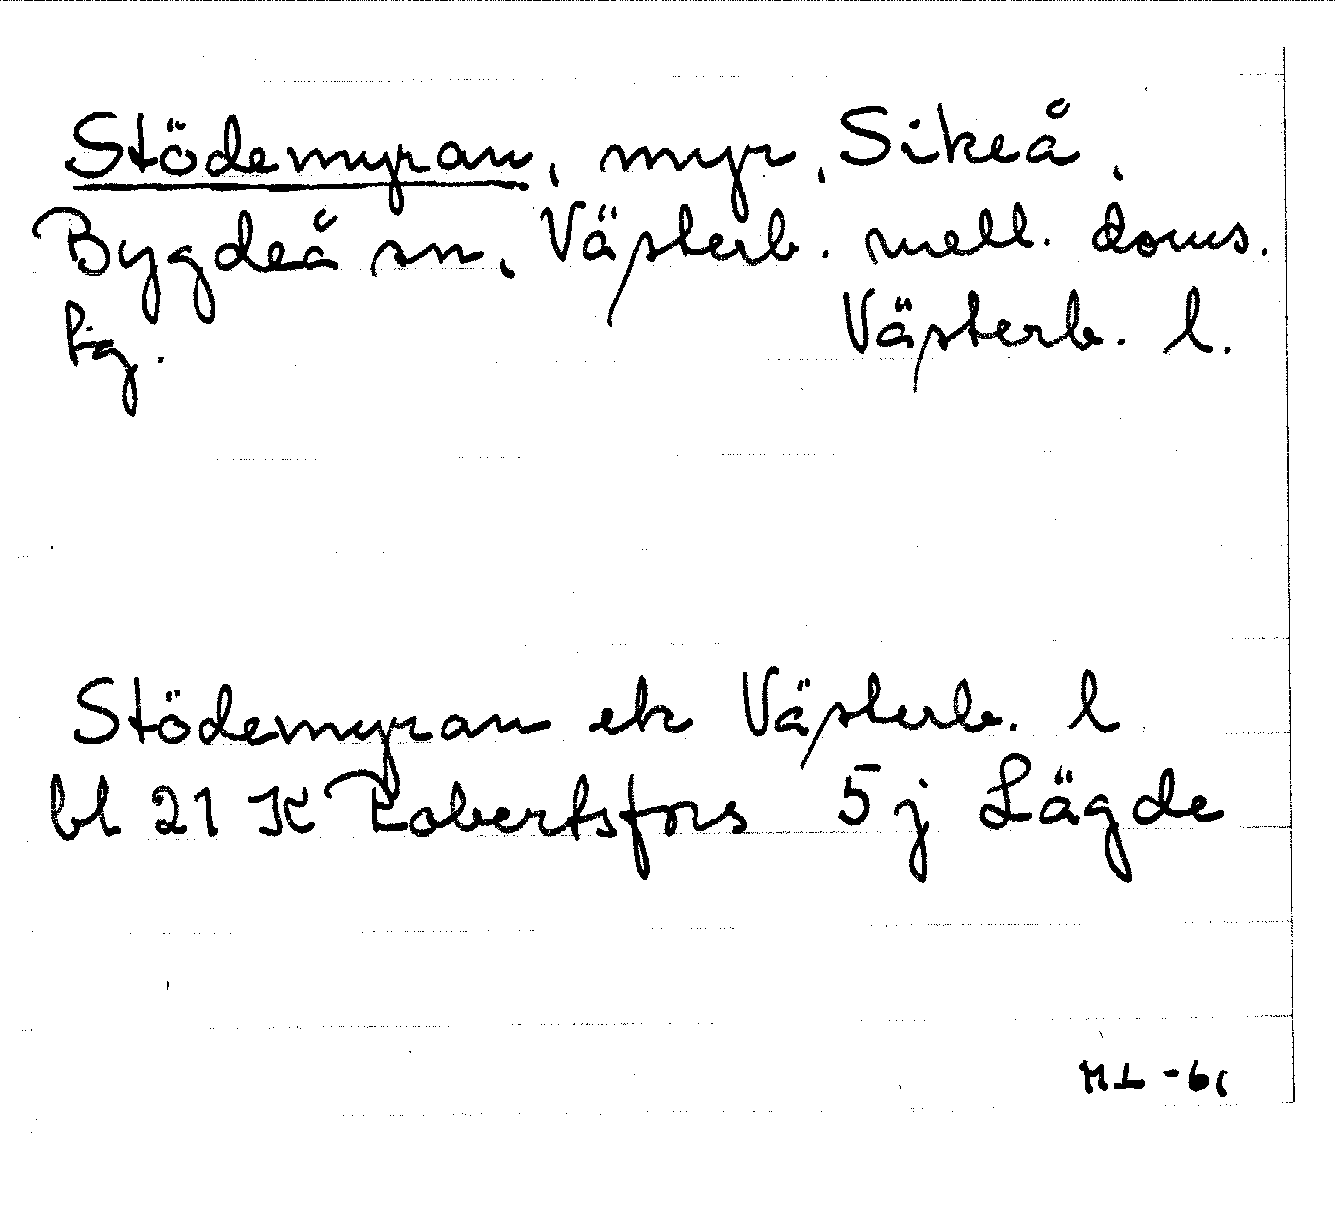 Stödemyran, myr, Sikeå,
Bygdeå sn, Västerb. mell. doms.
tg. Västerb. l.
Stödemyran ek Västerb. l
bl 21 K Robertsfors 5 j Lägde